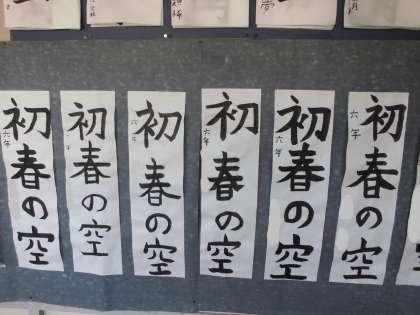 初春の空
六年
初春の空
初春の空
六年
初春の空
六年
初春の空
六年
初春の空
六年